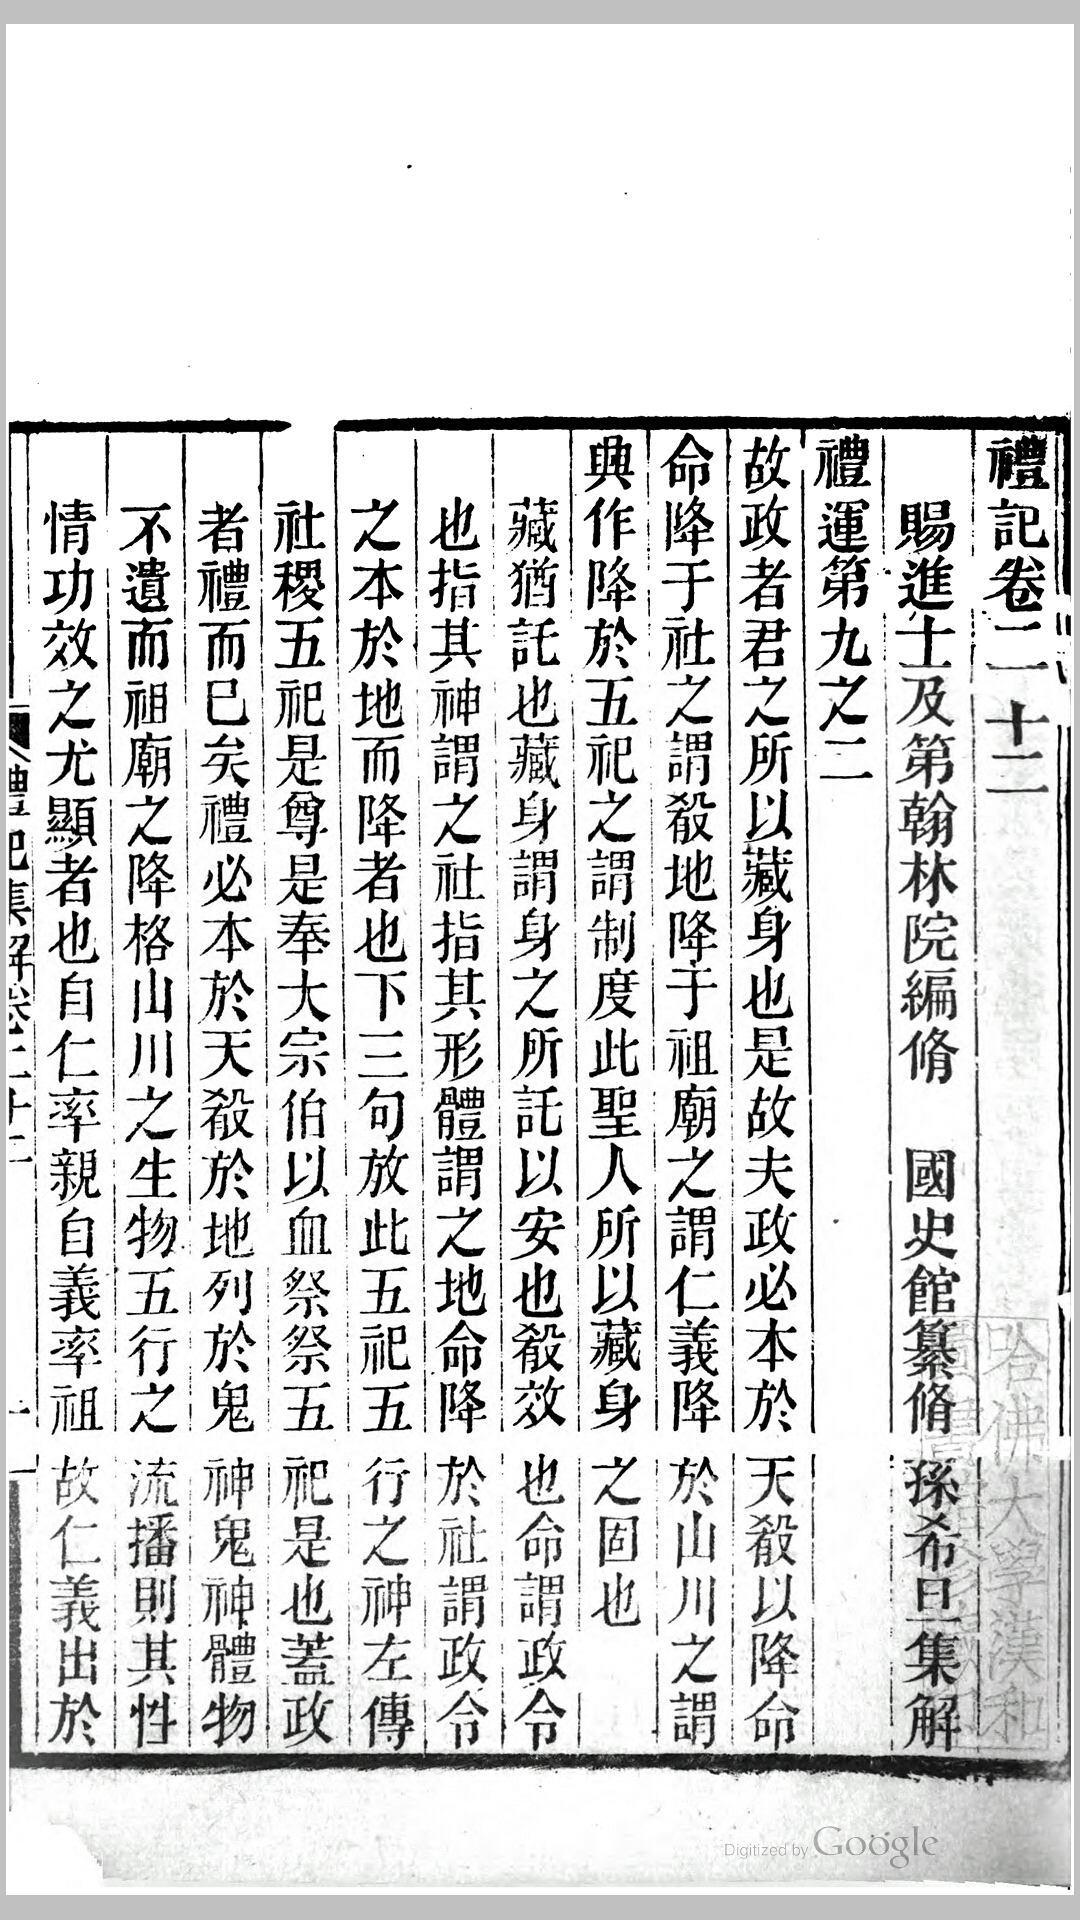 禮記卷二十二
賜進士及第翰林院編脩 國史館纂脩孫希旦集解
禮運第九之二
故政者君之所以藏身也是故夫政必本於天殽以降命
命降于社之謂殽地降于祖廟之謂仁義降於山川之謂
興作降於五祀之謂制度此聖人所以藏身之固也
藏猶託也藏身謂身之所託以安也殽效也命謂政令
也指其神謂之社指其形體謂之地命降於社謂政令
之本於地而降者也下三句放此五祀五行之神左傳
社稷五祀是尊是奉大宗伯以血祭祭五祀是也蓋政
者禮而已矣禮必本於天殽於地列於鬼神鬼神體物
不遺而祖廟之降格山川之生物五行之流播則其性
情功效之尤顯者也自仁率親自義率祖故仁義出於
禮記集解卷二十二 一
哈佛大學漢和
Digitized by Google